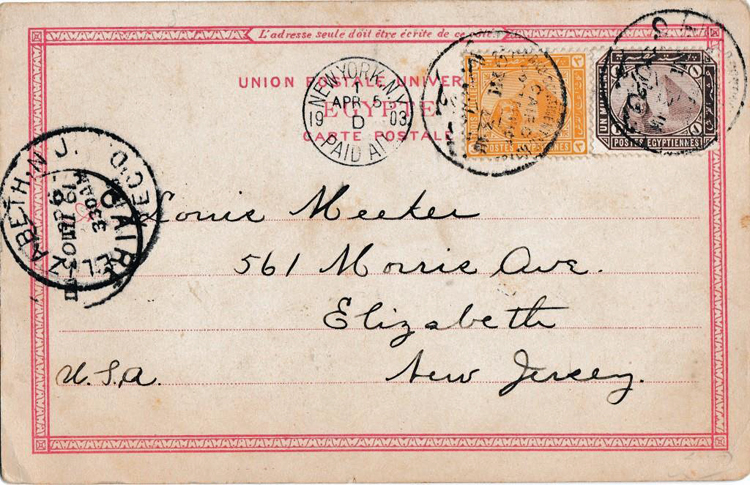 L'adresse seule doit être écrite de ce
UNION POSTALE UNIVER
EGYPTE
CARTE POSTALE
NEW YORK, N.Y.
1
APR 5
D
19 03
PAID ALL
POSTES EGYPTIENNES
POSTES EGYPTIENNES
CAIRO
ELIZABETH, N.J.
REC'D
330AM
CAIR
Louis Meeker
561 Morris Ave.
Elizabeth
New Jersey.
U.S.A.